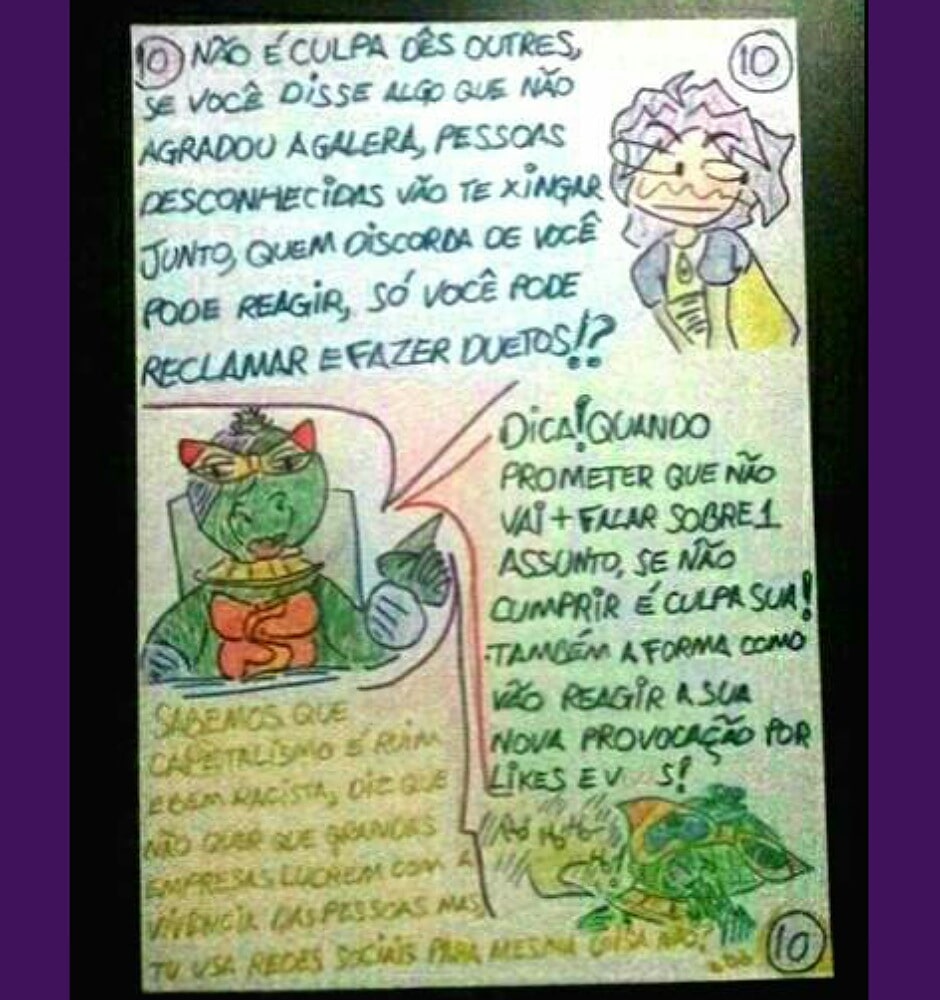 10 NÃO É CULPA DÊS OUTRES,
SE VOCÊ DISSE ALGO QUE NÃO
AGRADOU A GALERA, PESSOAS
DESCONHECIDAS VÃO TE XINGAR
JUNTO, QUEM DISCORDA DE VOCÊ
PODE REAGIR, SÓ VOCÊ PODE
RECLAMAR E FAZER DUETOS!?
10
DICA! QUANDO
PROMETER QUE NÃO
VAI + FALAR SOBRE 1
ASSUNTO, SE NÃO
CUMPRIR É CULPA SUA!
TAMBÉM A FORMA COMO
VÃO REAGIR A SUA
NOVA PROVOCAÇÃO POR
LIKES E V S!
S
SABEMOS QUE
CAPETALISMO É RUIM
E BEM RACISTA, DIZ QUE
NÃO QUER QUE GRANDES
EMPRESAS LUCREM COM A
VIVENCIA DAS PESSOAS MAS
TU USA REDES SOCIAIS PARA MESMA COISA NÃO?
10